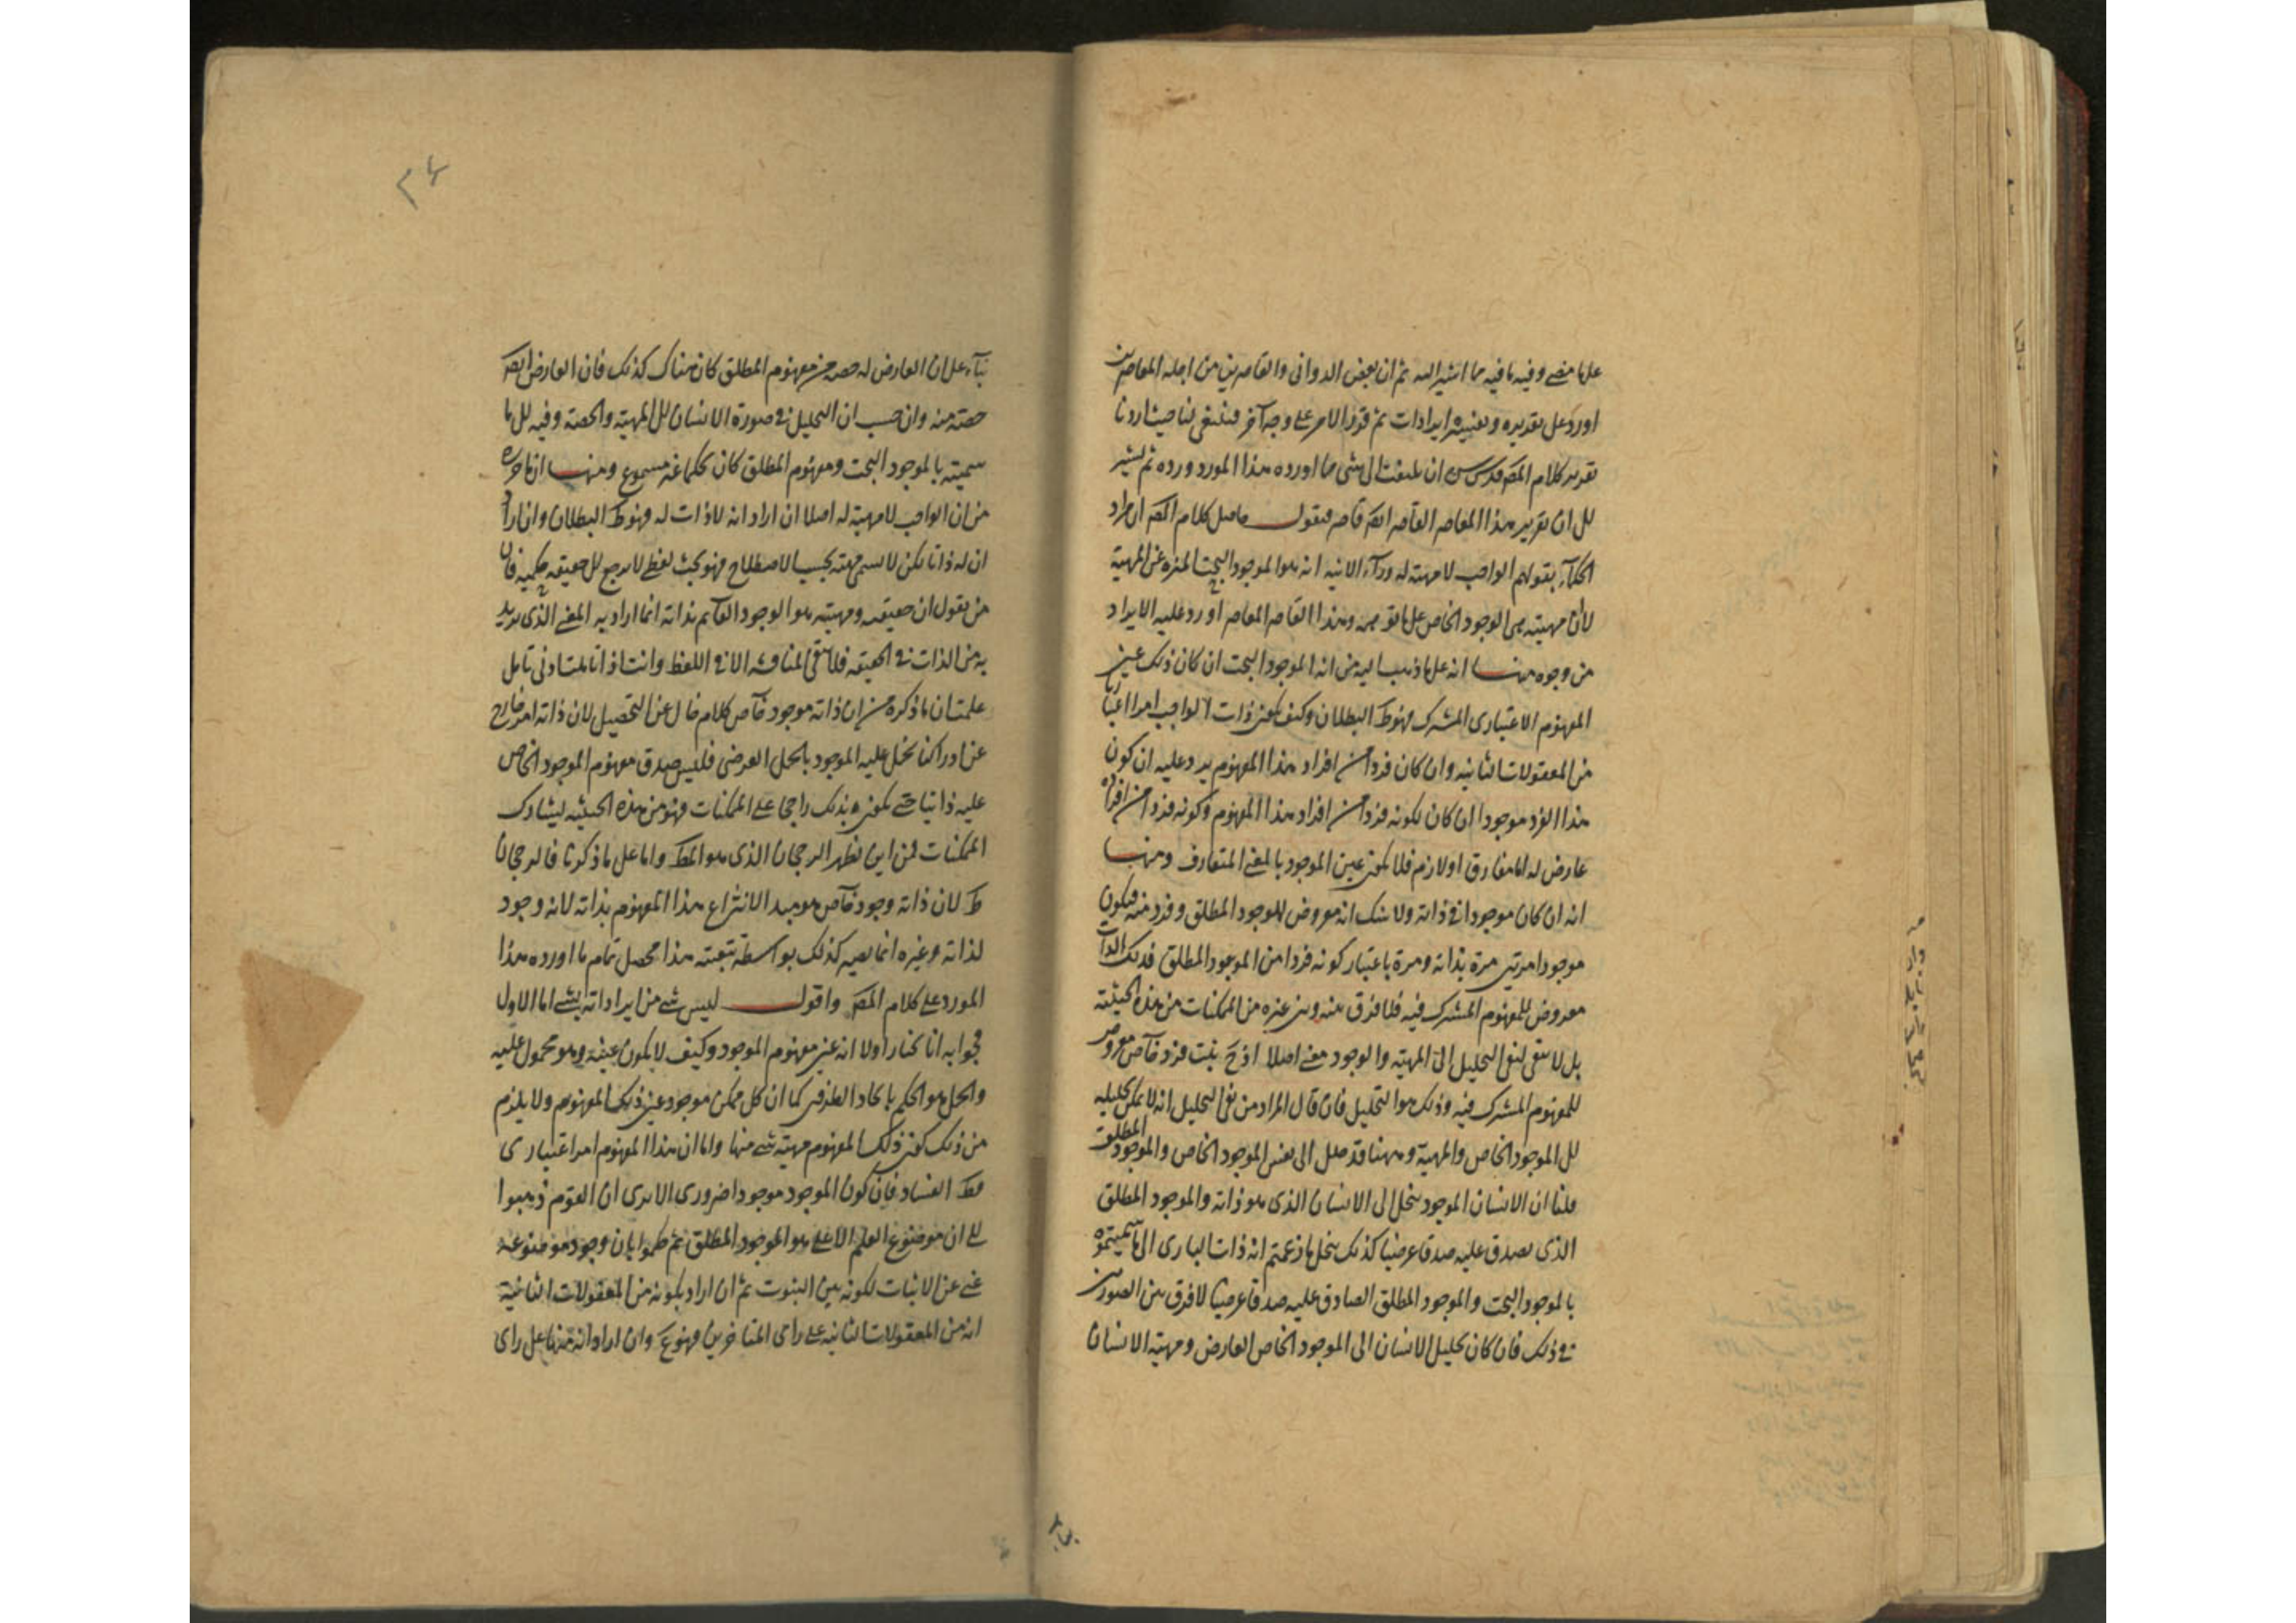 على ما مضى وفيه ما فيه مما اشير اليه ثم ان بعض الدوانى والقاصرين من اجله المعاصرين
اورد على تقديره وتعيينه ايرادات ثم قرر الامر على وجه آخر فينبغى لنا حيث اردنا
تقرير كلام المصر قدس سره ان نلتفت الى شى مما اورده هذا المورد ورده ثم نشير
الى ان تقرير هذا المعاصر القاصر ايضه قاصر فنقول حاصل كلام المصر ان مراد
الحكمآء بقولهم الواجب لا مهية له ورآء الانية انه هو الموجود البحت المنزه عن المهية
لان مهيته هى الوجود الخاص على ما تقرر وهذا القاصر المعاصر اورد عليه الايراد
من وجوه منها انه على ما ذهب اليه من انه الموجود البحت ان كان ذلك عين
المفهوم الاعتبارى المشترك فهو ظ البطلان وكيف يكون ذات الواجب امرا اعتباريا
من المعقولات الثانيه وان كان فردا من افراد هذا المفهوم يرد عليه ان كون
هذا الفرد موجودا ان كان لكونه فردا من افراد هذا المفهوم وكونه فردا من افراده
عارض له اما مفارق او لازم فلا يكون عين الموجود بالمعنى المتعارف ومنها
انه ان كان موجودا فى ذاته ولا شك انه معروض للموجود المطلق وفرد منه فيكون
موجودا مرتين مرة بذاته ومرة باعتبار كونه فردا من الموجود المطلق فذلك الذات
معروض للمفهوم المشترك فيه فلا فرق بينه وبين غيره من الممكنات من هذه الحيثية
بل لا يبقى لنفى التحليل الى المهية والوجود معنى اصلا اذ ح يثبت فرد خاص معروض
للمفهوم المشترك فيه وذلك هو التحليل فان قال المراد من نفى التحليل انه لا يمكن تحليله
الى الموجود الخاص والمهية وههنا قد حلل الى نفس الموجود الخاص والموجود المطلق
قلنا ان الانسان الموجود ينحل الى الانسان الذى هو ذاته والموجود المطلق
الذى يصدق عليه صدقا عرضيا كذلك ينحل ما زعمتم انه ذات البارى الى ما سميتموه
بالموجود البحت والموجود المطلق الصادق عليه صدقا عرضيا لا فرق بين الصورتين
فى ذلك فان كان تحليل الانسان الى الموجود الخاص العارض ومهية الانسان
بنآء على ان العارض له حصة من مفهوم المطلق كان هناك كذلك فان العارض ايضه
حصته منه وان حسب ان التحليل فى صورة الانسان الى المهية والحصة وفيه الى ما
سميته بالموجود البحت ومفهوم المطلق كان تحكما غير مسموع ومنها ان ما حرره
من ان الواجب لا مهية له اصلا ان اراد انه لا ذات له فهو ظ البطلان وان اراد
ان له ذاتا لكن لا يسمى مهية بحسب الاصطلاح فهو بحث لفظى لا يرجع الى حقيقة حكمية فان
من يقول ان حقيقته ومهيته هو الوجود القآئم بذاته انما اراد به المعنى الذى يريد
به من الذات فى الحقيقة فلا تبقى المناقشه الا فى اللفظ وانت اذا تاملت ادنى تامل
علمت ان ما ذكره من ان ذاته موجود خآص كلام خال عن التحصيل لان ذاته امر خارج
عن ادراكنا يحمل عليه الموجود بالحمل العرضى فليس صدق مفهوم الموجود الخاص
عليه ذاتيا حتى يكون بذلك راجحا على الممكنات فهو من هذه الحيثيه يشارك
الممكنات فمن اين يظهر الرجحان الذى هو المط واما على ما ذكرنا فالرجحان
ظ لان ذاته وجود خآص هو مبدء الانتزاع هذا المفهوم بذاته لانه وجود
لذاته وغيره انما يصير كذلك بواسطة تبعيته هذا محصل تمام ما اورده هذا
المورد على كلام المصر واقول ليس شى من ايراداته بشى اما الاول
فجوابه انا نختار اولا انه عين مفهوم الموجود وكيف لا يكون عينه وهو محمول عليه
والحمل هو الحكم باتحاد الطرفين كما ان كل ممكن موجود عين ذلك المفهوم ولا يلزم
من ذلك كون ذلك المفهوم مهية شى منها واما ان هذا المفهوم امر اعتبارى
فظ الفساد فان كون الموجود موجودا ضرورى الا يرى ان القوم ذهبوا
الى ان موضوع العلم الاعلى هو الموجود المطلق ثم حكموا بان وجود موضوعه
غنى عن الاثبات لكونه بين الثبوت ثم ان اراد بكونه من المعقولات الثانية
انه من المعقولات الثانيه على راى المتاخرين فهو ع وان اراد انه منها على راى
٢٤